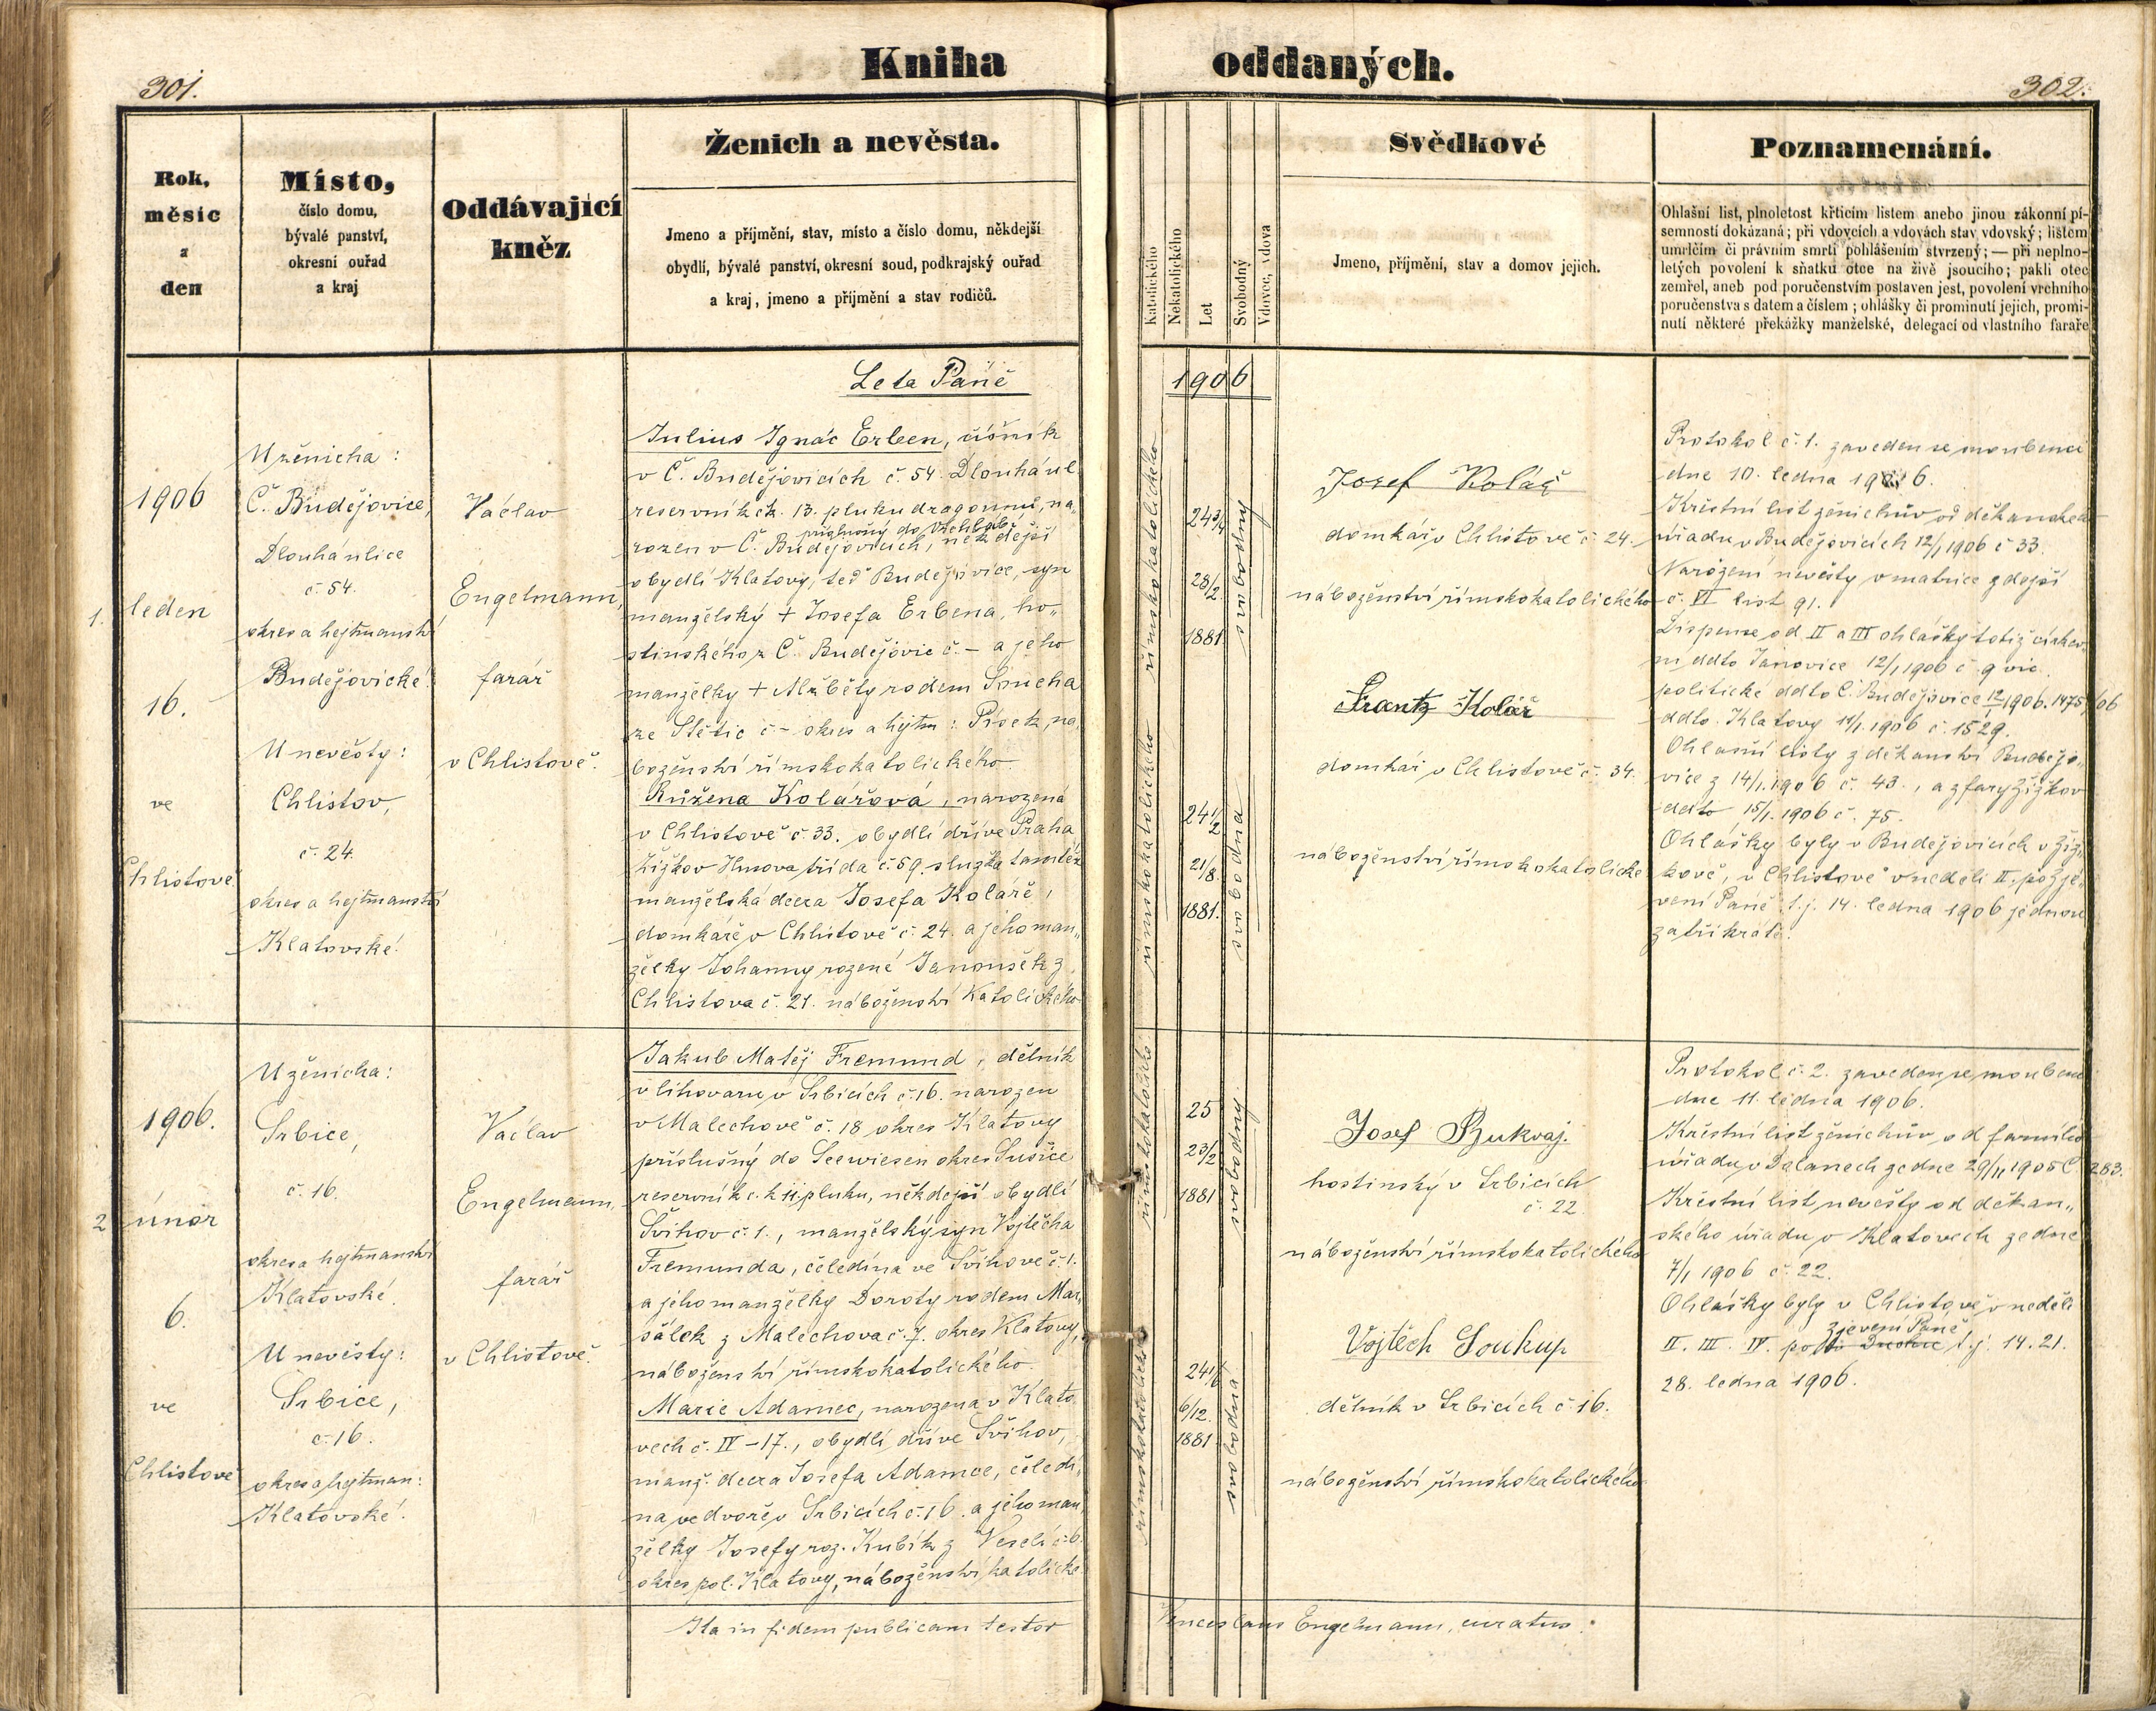 Kniha oddaných.
301.
302.
Rok,
měsíc
a
den
Místo,
číslo domu,
bývalé panství,
okresní ouřad
a kraj
Oddávající
kněz
Ženich a nevěsta.
Jmeno a příjmění, stav, místo a číslo domu, někdejší
obydlí, bývalé panství, okresní soud, podkrajský ouřad
a kraj, jmeno a příjmění a stav rodičů.
Katolického
Nekatolického
Let
Svobodný
Vdovec, vdova
Svědkové
Jmeno, příjmění, stav a domov jejich.
Poznamenání.
Ohlašní list, plnoletost křticím listem anebo jinou zákonní pí-
semností dokázaná; při vdovcích a vdovách stav vdovský; listem
umrlčím či právním smrti pohlášením stvrzený; — při neplno-
letých povolení k sňatku otce na živě jsoucího; pakli otec
zemřel, aneb pod poručenstvím postaven jest, povolení vrchního
poručenstva s datem a číslem; ohlášky či prominutí jejich, promi-
nutí některé překážky manželské, delegací od vlastního faráře
Leta Páně 1906
1.
1906
leden
16.
ve
Chlistově
U ženicha:
Č. Budějovice,
Dlouhá ulice
č. 54.
okres a hejtmanství
Budějovické.
U nevěsty:
Chlistov,
č. 24.
okres a hejtmanství
Klatovské.
Václav
Engelmann,
farář
v Chlistově.
Julius Ignác Erben, číšník
v Č. Budějovicích č. 54. Dlouhá ul.
reservník ck. 13. pluku dragounů, na-
příslušný do
rozen v Č. Budějovicích, někdejší
obydlí Klatovy, teď Budějovice, syn
manželský + Josefa Erbena, ho-
stinského z Č. Budějovic č. - a jeho
manželky + Alžběty rodem Soucha
ze Štětic č - okres a hejtm: Písek, ná-
boženství římskokatolického.
Růžena Kolářová, narozená
v Chlistově č. 33. obydlí dříve Praha
Žižkov Husova třída č. 59. služka tamtéž
manželská dcera Josefa Koláře,
domkáře v Chlistově č. 24. a jeho man-
želky Johanny rozené Janoušek z
Chlistova č. 21. náboženství katolického
římskokatolického
24 3/4
28/2.
1881.
svobodný
římskokatolického
24 1/2
21/8.
1881.
svobodna
Josef Kolář
domkář v Chlistově č. 24.
náboženství římskokatolického
Frantz Kolář
domkář v Chlistově č. 34.
náboženství římskokatolické
Protokol č. 1. zaveden se snoubenci
dne 10. ledna 1906.
Křestní list ženichův od děkanského
úřadu v Budějovicích 12/1 1906 č 33.
Narození nevěsty v matrice zdejší
č. VI list 91.
Dispense od II a III ohlášky totiž církev-
ní ddto Janovice 12/1 1906 č 9 vic.
politické ddto Č. Budějovice 12/1 1906. 1475/06
ddto. Klatovy 11/1. 1906 č. 1529.
Ohlašní listy z děkanství Budějo-
vice z 14/1. 1906 č. 43., a z fary Žižkov
ddto 15/1. 1906 č. 75.
Ohlášky byly v Budějovicích v Žiž-
kově, v Chlistově v neděli II. po zje-
vení Páně t. j. 14. ledna 1906 jednou
za třikráte.
2
1906.
únor
6.
ve
Chlistově
U ženicha:
Srbice,
č. 16.
okres a hejtmanství
Klatovské.
U nevěsty:
Srbice,
č. 16.
okres a hejtman:
Klatovské.
Václav
Engelmann,
farář
v Chlistově.
Jakub Matěj Fremund, dělník
v lihovaru v Srbicích č. 16. narozen
v Malechově č. 18 okres Klatovy
příslušný do Seewiesen okres Sušice
reservník c. k 11 pluku, někdejší obydlí
Švihov č. 1., manželský syn Vojtěcha
Fremunda, čeledína ve Švihově č. 1.
a jeho manželky Doroty rodem Mar-
šálek z Malechova č. 7. okres Klatovy,
náboženství římskokatolického.
Marie Adamec, narozena v Klato-
vech č. IV – 17., obydlí dříve Švihov,
manž. dcera Josefa Adamce, čeledí-
na ve dvoře v Srbicích č. 16. a jeho man-
želky Josefy roz. Kubík z Veselí č. 6.
okres pol. Klatovy, náboženství katolické
římskokatolického
25
23/2
1881
svobodný
římskokatolického
24 1/6
6/12.
1881
svobodna
Josef Bukvaj.
hostinský v Srbicích
č. 22.
náboženství římskokatolického
Vojtěch Soukup
dělník v Srbicích č. 16.
náboženství římskokatolického
Protokol č. 2. zaveden se snoubenci
dne 11. ledna 1906.
Křestní list ženichův od farního
úřadu v Dolanech ze dne 29/11 1905 č. 283.
Křestní list nevěsty od děkan-
ského úřadu v Klatovech ze dne
7/1 1906 č. 22.
Ohlášky byly v Chlistově v neděli
zjevení Páně
II. III. IV. po t. j. 14. 21.
28. ledna 1906.
Ita in fidem publicam testor Venceslaus Engelmann, curatus.